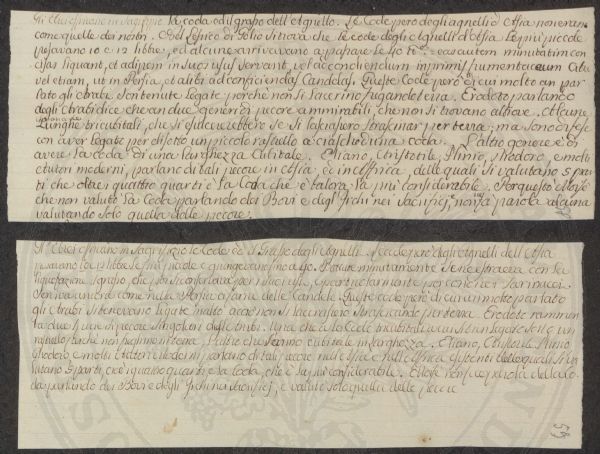 Gli Ebrei offrivano in Sacrifizio la coda od il grasso dell'Agnello. Le Code però degli agnelli d'Asia non eran
come quelle dei nostri. Nel Lessico di Golio si trova che le code degli Agnelli d'Asia le più piccole
pesavano 10 e 12 libbre, ed alcune arrivavano a pesare le 40
ossas liquant, et adipem in suos usus servant, vel ad condiendum imprimis cibu
vel etiam, ut in Persia, et alibi ad conficiendas Candelas. Queste Code però di cui molto an par
lato gli Arabi son tenute legate perchè non si lacerino fregando terra. Erodoto parlando
degli Arabi dice che an due generi di pecore ammirabili, che non si trovano altrove. Alcune
Lunghe tricubitali, che si esulcererebbero se si lasciassero strascinar per terra; ma sono difese
con aver legate per disotto un piccolo rastello a ciascheduna coda. L'altro genere è di
avere la coda di una larghezza Cubitale. Eliano, Aristotile, Plinio, Diodoro, e molti
autori moderni, parlano di tali pecore in Asia, ed in Africa, delle quali si valutano 5 par
ti che oltre i quattro quarti è la Coda che è talora la più considerabile. Per questo Mosè
che non valutò la Coda parlando dei Bovi e degl'Irchi nei Sacrifizj, non fa parola alcuna
valutando solo quella delle pecore.
Gli Ebrei offrivano in Sagrifizio le Code ed il Grasso degli Agnelli. Le code però degli Agnelli dell'Asia
pesavano 10 e 12 libbre le più piccole e giungevano fino a 40. Poi minutamente se ne estraeva con la
liquefazione il grasso, che poi si conservava per suoi usi, e particolarmente per condire i Farinacei.
Serviva ancora come nella Persia a farne delle Candele. Queste code però di cui an molto parlato
gli Arabi si tenevano legate in alto acciò non si lacerassero strascicando per terra. Erodoto ramm
ta due specie di pecore singolari degli Arabi. Una che à la Coda tricubitale a cui si tien legato sotto un
rastello, perchè non freghino in terra, l'altra che l'anno cubitale in larghezza. Eliano, Aristotile, Plinio
Diodoro, e molti Autori moderni parlano di tali pecore nell'Asia e nell'Africa, delle quali si va
lutano 5 parti, cioè i quattro quarti, e la Coda, che è la più considerabile. Mosè non fa parola della co
da parlando dei Bovi e degl'Irchi nei Sacrifizj, e valuta solo quella delle pecore